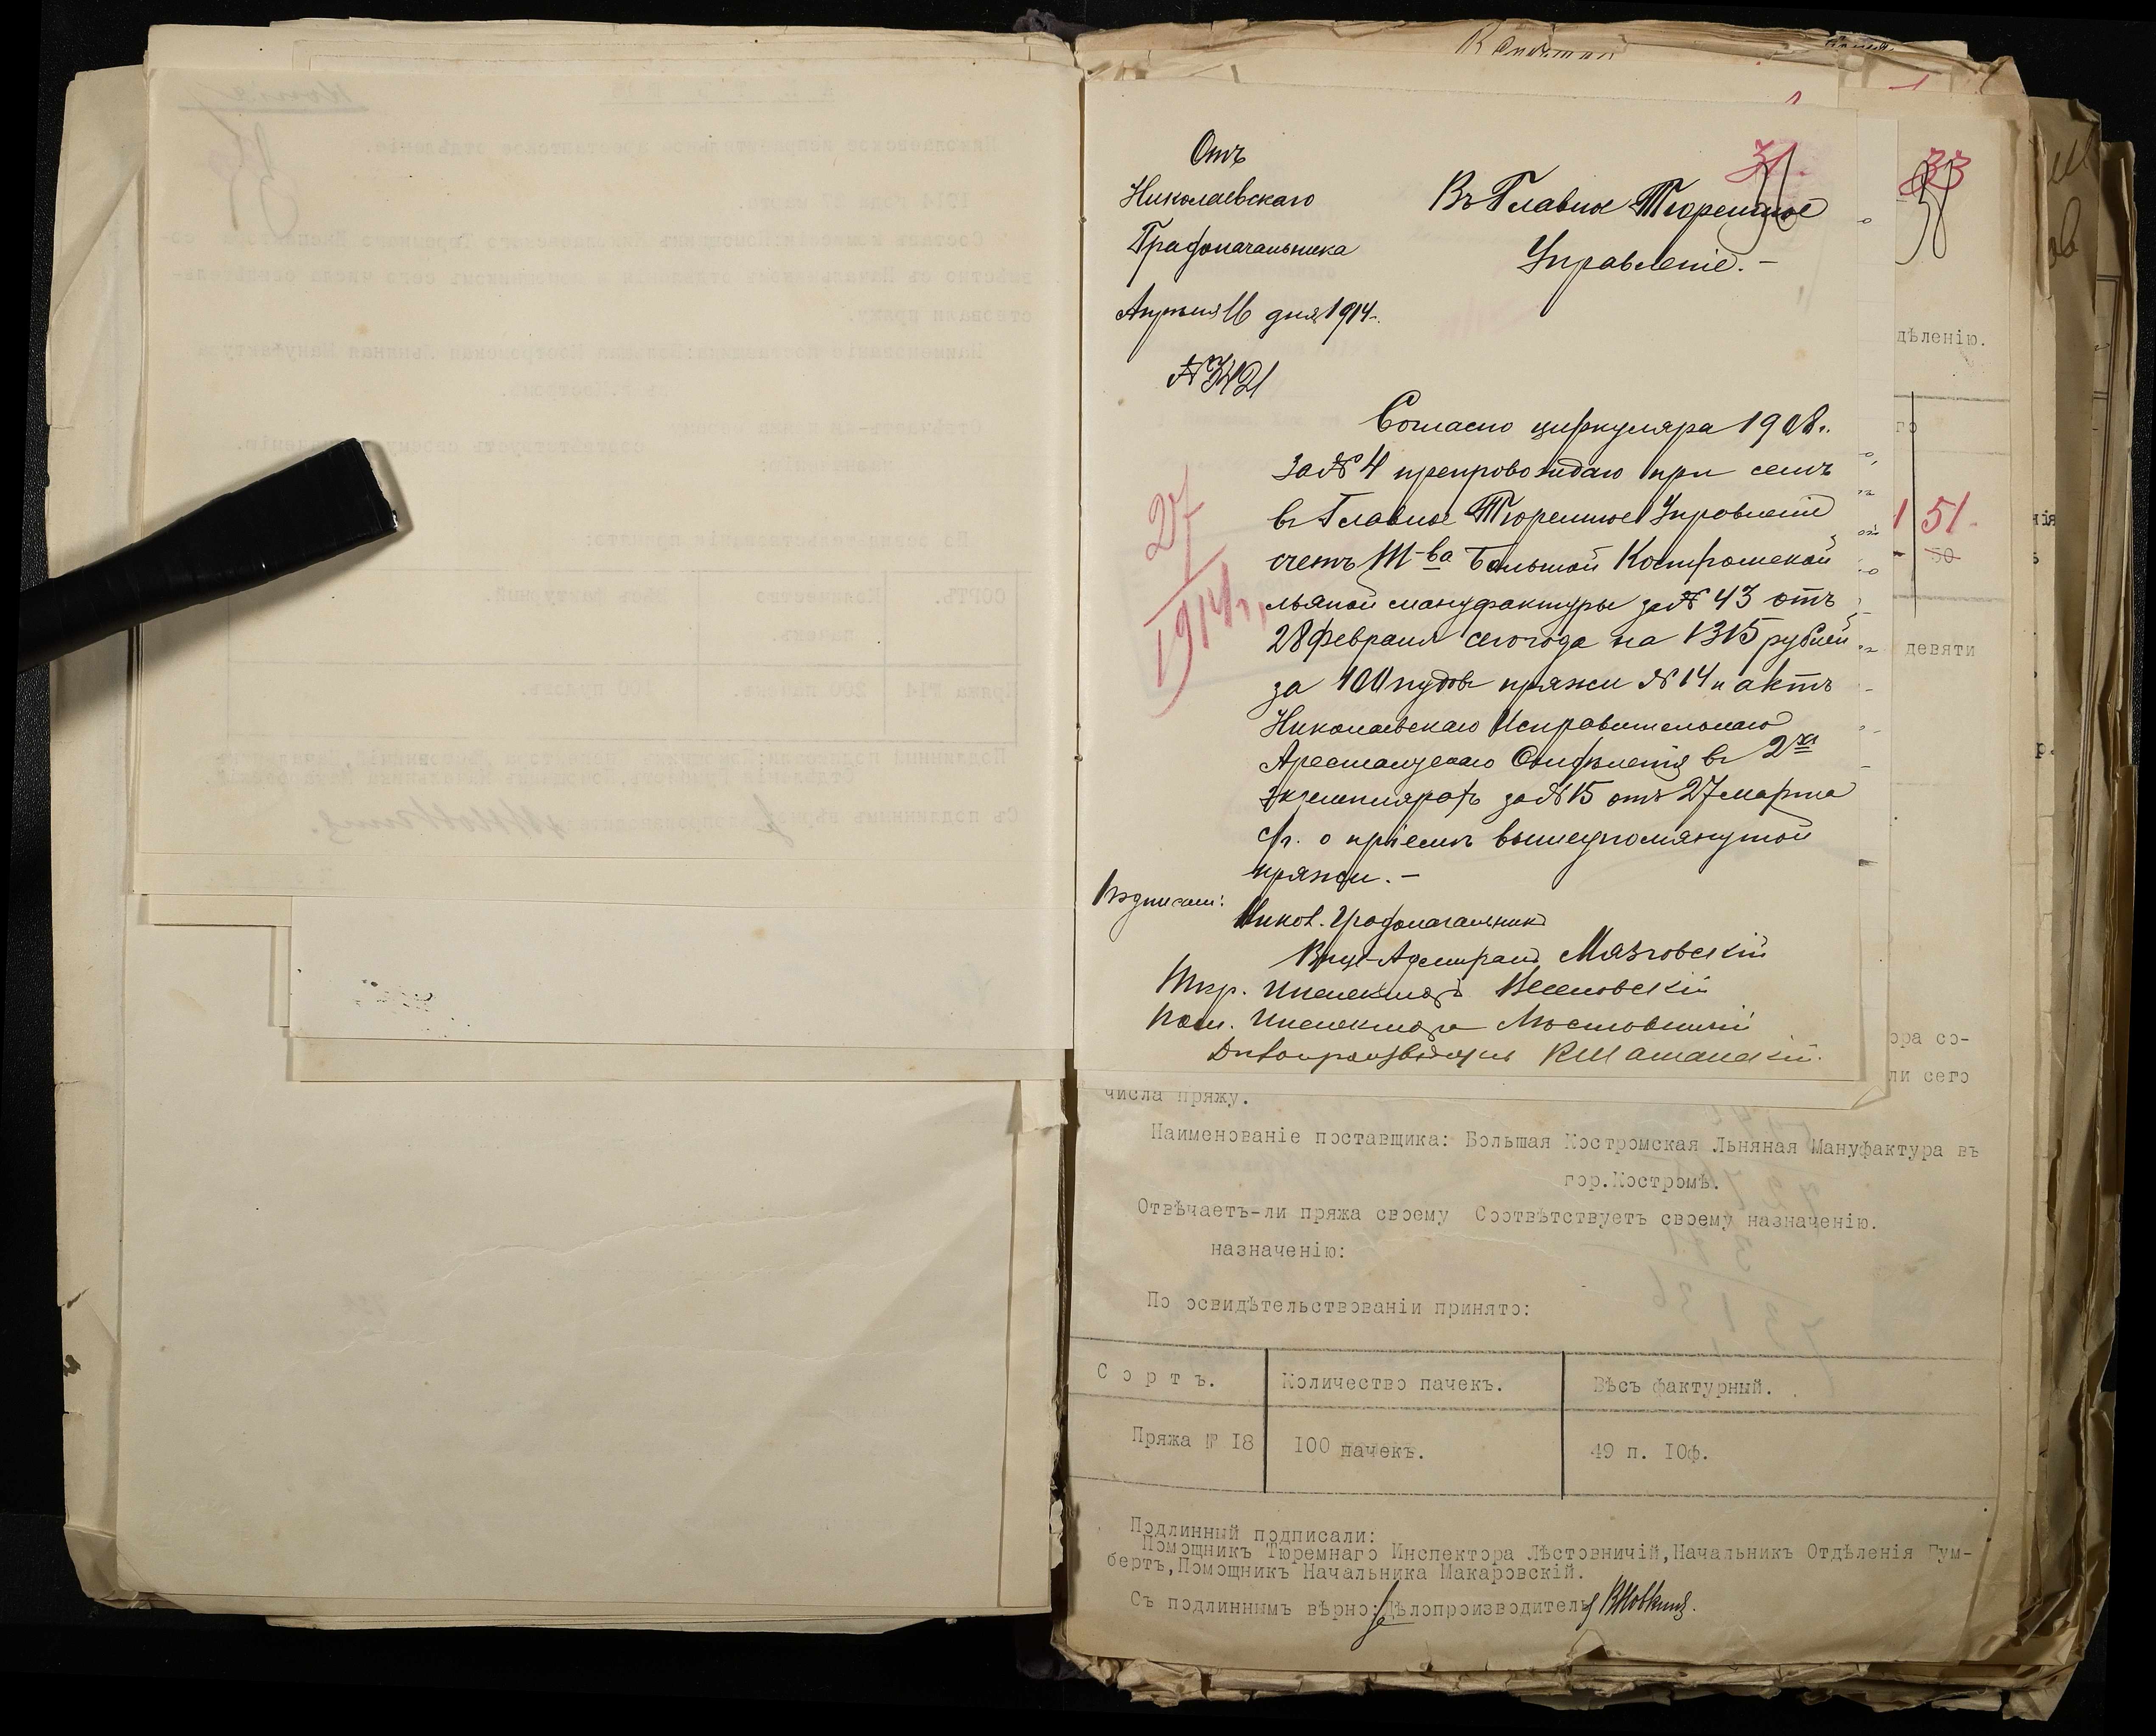 Отъ
Николаевскаго
Градоначальника
Апрѣля 16 дня 1914.
№ 3421
31.
Въ Главное Тюремное
Управленіе.-
Согласно циркуляра 1908.
за № 4 препровождаю при семъ
въ Главное Тюремное Управленіе
счетъ Т-ва Большой Костромской
льяной мануфактуры за № 43 отъ
28 февраля сего года на 1315 рублей
за 100 пудовъ пряжи № 14 и актъ
Николаевскаго Исправительнаго
Арестантскаго Отдѣленія въ 2хъ
экземплярахъ за № 15 отъ 27 марта
с/г. о пріемкѣ вышеупомянутой
пряжи.-
27/1914 г.
Подписали:
Никол. Градоначальникъ
Вице-Адмиралъ Мязговскій
Тюр. Инспекторъ
Пом. Инспектора Лѣстовничій
Дѣлопроизводитель
33
дѣленію.
го
1 51.
50
девяти
ора со-
ли сего
числа пряжу.
Наименованіе поставщика: Большая Костромская Льняная Мануфактура въ
гор.Костромѣ.
Отвѣчаетъ-ли пряжа своему Соотвѣтствуетъ своему назначенію.
назначенію:
По освидѣтельствованіи принято:
Сортъ. Количество пачекъ. Вѣсъ фактурный.
Пряжа № 18 100 пачекъ. 49 п. 10ф.
Подлинный подписали:
Помощникъ Тюремнаго Инспектора Лѣстовничій,Начальникъ Отдѣленія Гум-
бертъ,Помощникъ Начальника Макаровскій.
Съ подлиннымъ вѣрно:Дѣлопроизводитель